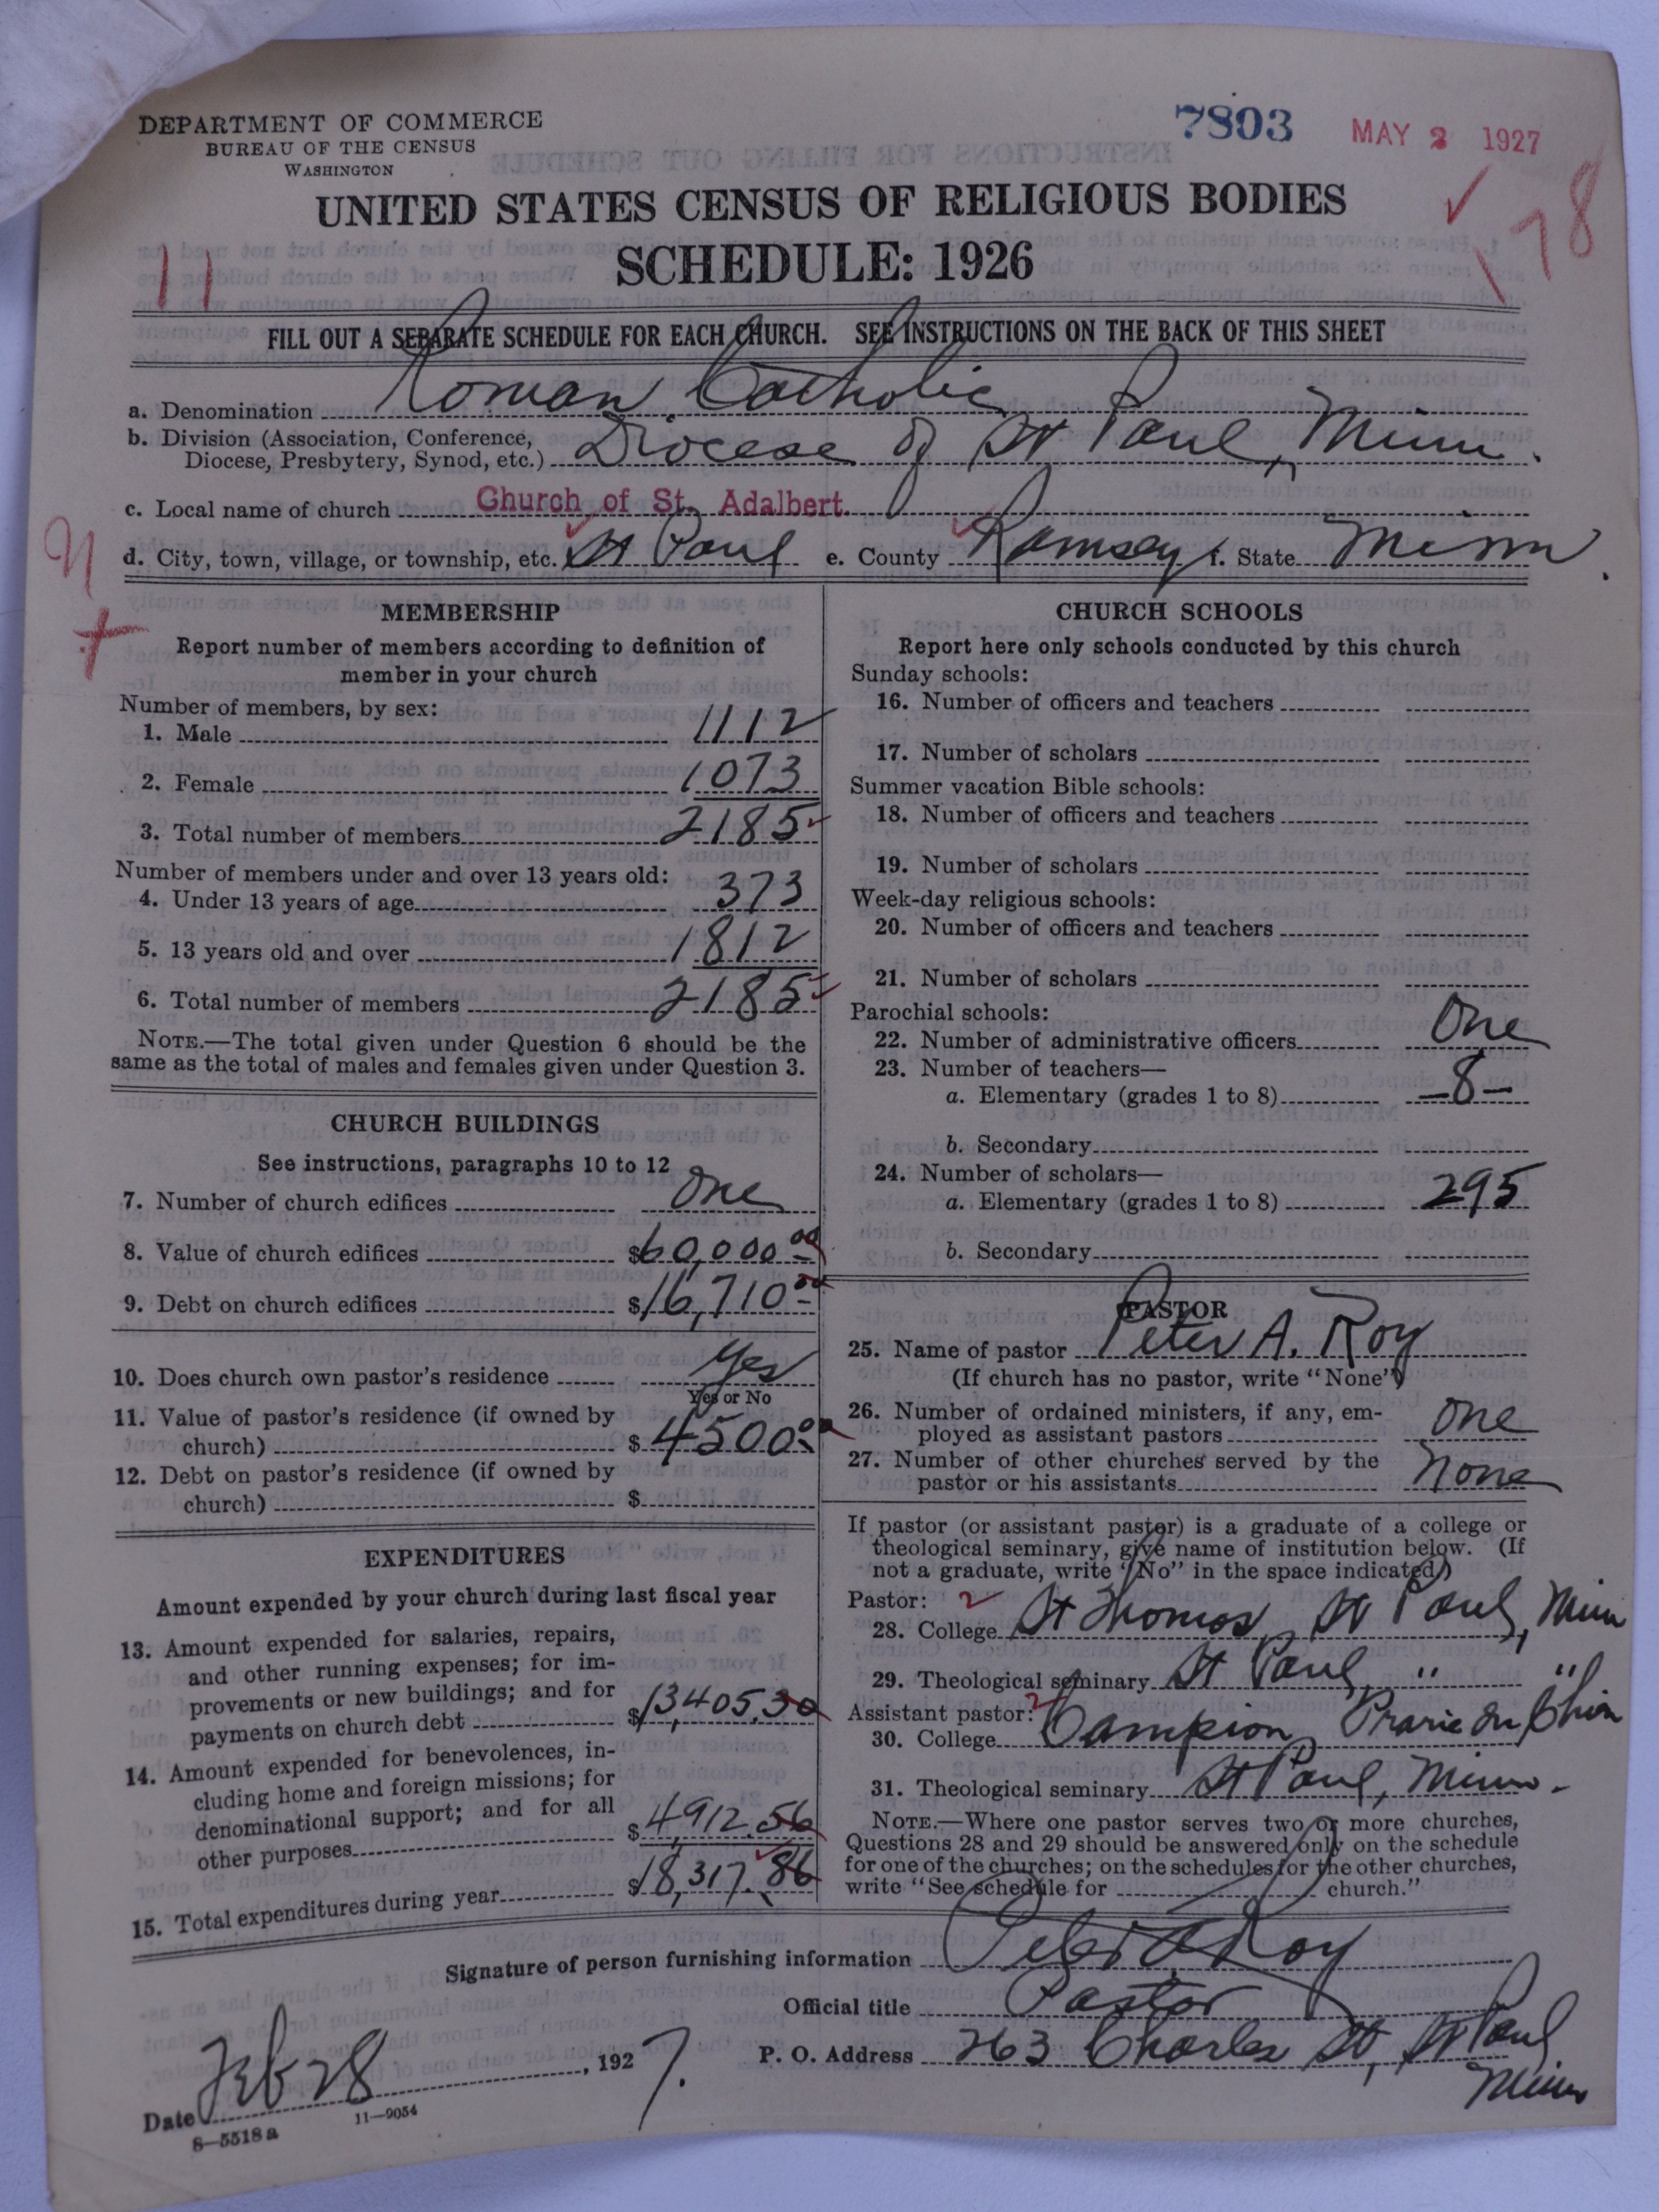 DEPARTMENT OF COMMERCE
BUREAU OF THE CENSUS
WASHINGTON
7803
MAY 2 1927
UNITED STATES CENSUS OF RELIGIOUS BODIES
SCHEDULE: 1926
11
178
FILL OUT A SEPARATE SCHEDULE FOR EACH CHURCH. SEE INSTRUCTIONS ON THE BACK OF THIS SHEET
a. Denomination Roman Catholic
b. Division (Association, Conference,
Diocese, Presbytery, Synod, etc.) Diocese of St Paul, Minn.
c. Local name of church Church of St. Adalbert.
d. City, town, village, or township, etc. St Paul e. County Ramsey f. State Minn.
MEMBERSHIP
Report number of members according to definition of
member in your church
Number of members, by sex:
1. Male 1112
2. Female 1073
3. Total number of members 2185
Number of members under and over 13 years old:
4. Under 13 years of age 373
5. 13 years old and over 1812
6. Total number of members 2185
NOTE.—The total given under Question 6 should be the
same as the total of males and females given under Question 3.
CHURCH BUILDINGS
See instructions, paragraphs 10 to 12
7. Number of church edifices One
8. Value of church edifices $60,000.00
9. Debt on church edifices $16,710.00
10. Does church own pastor's residence Yes
Yes or No
11. Value of pastor's residence (if owned by
church) $4500.00
12. Debt on pastor's residence (if owned by
church) $
EXPENDITURES
Amount expended by your church during last fiscal year
13. Amount expended for salaries, repairs,
and other running expenses; for im-
provements or new buildings; and for
payments on church debt $13,405.30
14. Amount expended for benevolences, in-
cluding home and foreign missions; for
denominational support; and for all
other purposes $4,912.56
15. Total expenditures during year $18,317.86
CHURCH SCHOOLS
Report here only schools conducted by this church
Sunday schools:
16. Number of officers and teachers
17. Number of scholars
Summer vacation Bible schools:
18. Number of officers and teachers
19. Number of scholars
Week-day religious schools:
20. Number of officers and teachers
21. Number of scholars
Parochial schools:
22. Number of administrative officers One
23. Number of teachers—
a. Elementary (grades 1 to 8) —8—
b. Secondary
24. Number of scholars—
a. Elementary (grades 1 to 8) 295
b. Secondary
PASTOR
25. Name of pastor Peter A. Roy
(If church has no pastor, write "None")
26. Number of ordained ministers, if any, em-
ployed as assistant pastors One
27. Number of other churches served by the
pastor or his assistants None
If pastor (or assistant pastor) is a graduate of a college or
theological seminary, give name of institution below. (If
not a graduate, write "No" in the space indicated)
Pastor: 2
28. College St Thomas, St Paul, Minn
29. Theological seminary St Paul, " "
Assistant pastor: 2
30. College Campion, Prarie du Chien
31. Theological seminary St Paul, Minn.
NOTE.—Where one pastor serves two or more churches,
Questions 28 and 29 should be answered only on the schedule
for one of the churches; on the schedules for the other churches,
write "See schedule for church."
Signature of person furnishing information Peter A. Roy
Official title Pastor
Date Feb 28, 1927. P. O. Address 263 Charles St, St Paul
Minn
8—5518a 11—9054